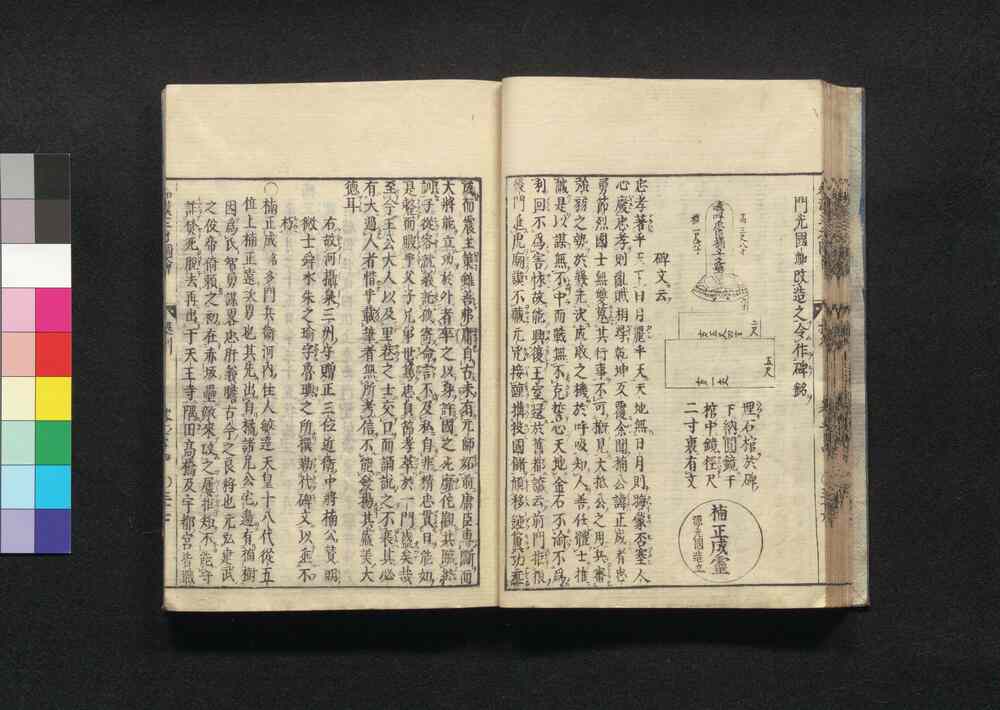 門光國卿改造之令作碑銘
埋石棺於碑
下納圓鏡于
棺中鏡徑尺
二寸裏有文
楠正成靈
碑文云
忠孝著乎天下日月麗乎天天地無日月則晦蒙否塞人
心廢忠孝則亂賊相尋乾坤反覆余聞楠公諱正成者忠
勇節烈國士無雙蒐其行事不可概見大抵公之用兵審
強弱之勢於幾先決成敗之機於呼吸知人善任體士推
誠是以謀無不中而戰無不克誓心天地金石不渝不爲
利回不爲害怵故能興復王室還於舊都諺云前門拒狼
後門進虎廟謨不臧元兇接踵構殺國儲傾移鐘簴功垂
成而震主策雖善弗庸自古未有元帥妬前庸臣專斷而
大將能立功於外者卒之以身許國之死靡佗觀其臨終
訓子從容就義託孤寄命言不及私自非精忠貫日能如
是整而暇乎父子兄弟世篤忠貞節孝萃於一門盛矣哉
至今王公大人以及里巷之士交口而誦說之不衰其必
有大過人者惜乎載筆者無所考信不能發揚其盛美大
德耳
右故河攝泉三州守贈正三位近衞中將楠公贊明
徵士舜水朱之瑜字魯璵之所撰勒代碑文以垂不
朽
〇楠正成 多門兵衞河內住人敏達天皇十八代從五
位上楠正遠次男也其先出自橘諸兄公宅邊有楠樹
因爲氏智勇謀略忠肝義膽古今之良將也元弘建武
之役帝倚賴之初在赤坂
詳焚死脫去再出于天王寺隅田高橋及宇都宮皆